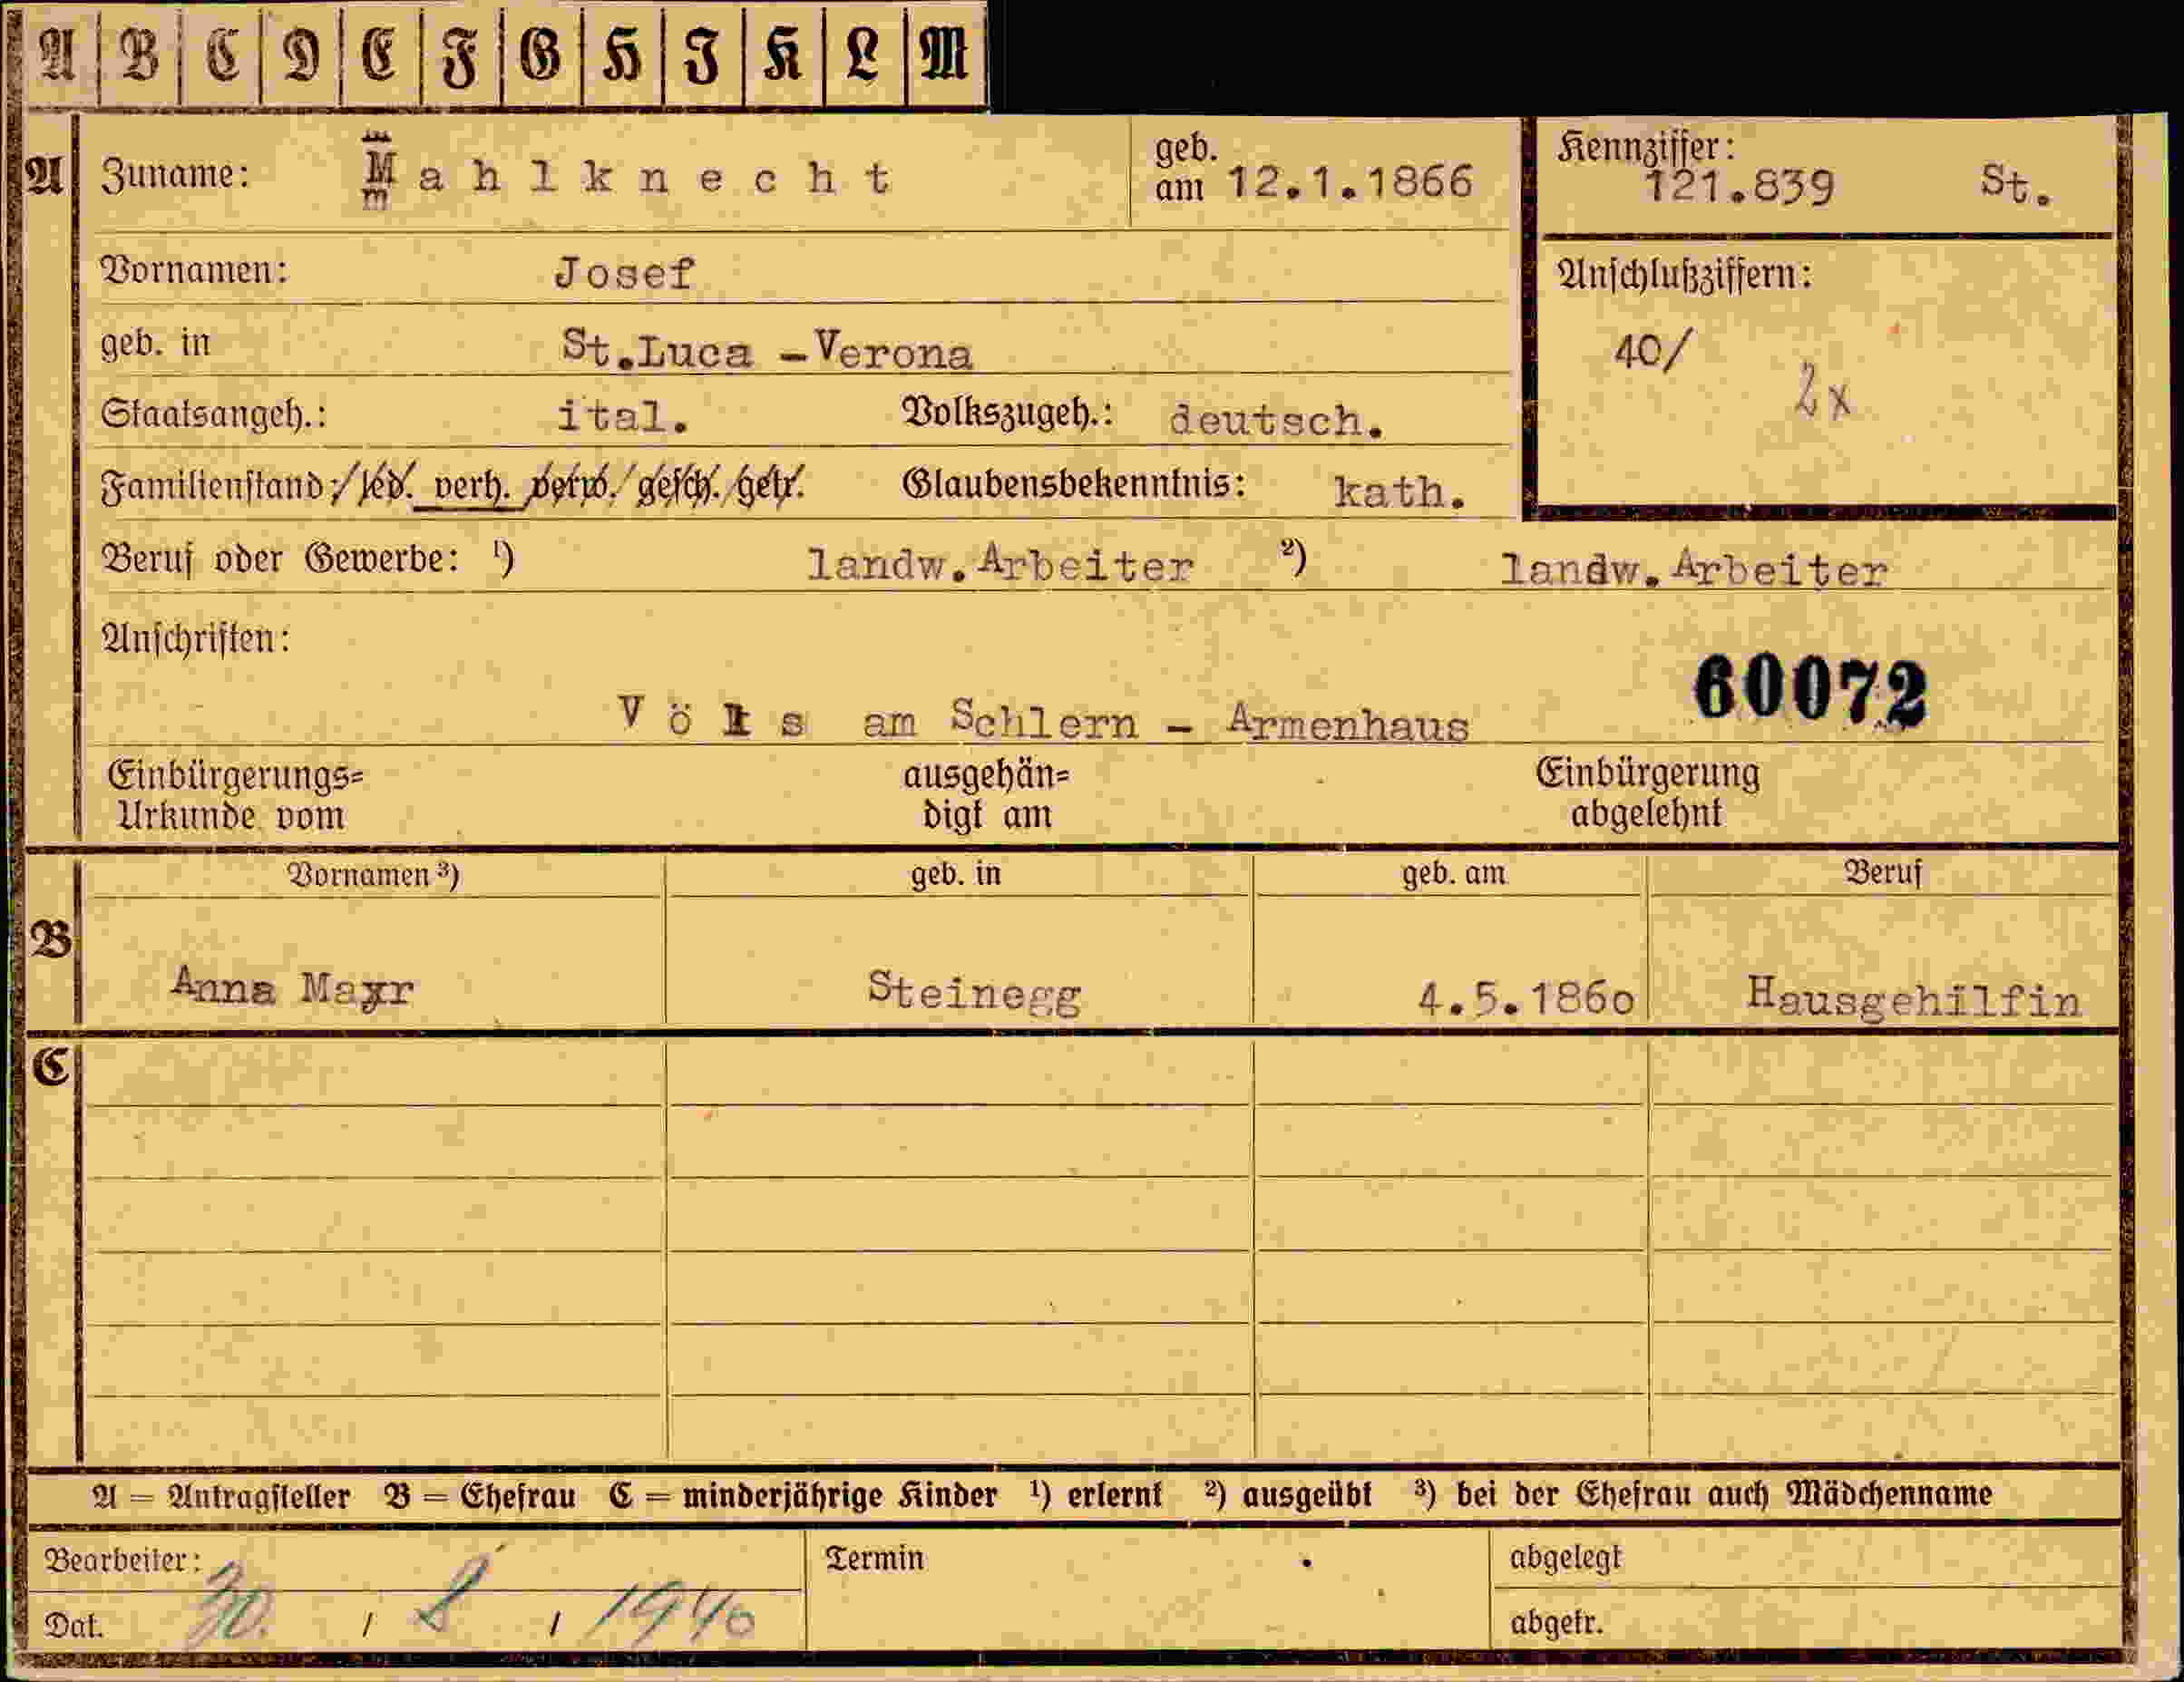 A B C D E F G H I K L M
A Zuname: Mahlknecht geb. am 12.1.1866 Kennziffer: 121.839 St.
Vornamen: Josef Anschlußziffern:
geb. in St.Luca - Verona 40/ 2x
Staatsangeh.: ital. Volkszugeh.: deutsch.
Familienstand: led. verh. verw. gesch. getr. Glaubensbekenntnis: kath.
Beruf oder Gewerbe: ¹) landw. Arbeiter ²) landw. Arbeiter
Anschriften:
60072
Völs am Schlern - Armenhaus
Einbürgerungs= ausgehän= Einbürgerung
Urkunde vom digt am abgelehnt
Vornamen ³) geb. in geb. am Beruf
B
Anna Mayr Steinegg 4.5.1860 Hausgehilfin
C
A = Antragsteller B = Ehefrau C = minderjährige Kinder ¹) erlernt ²) ausgeübt ³) bei der Ehefrau auch Mädchenname
Bearbeiter: Termin abgelegt
Dat. 30. / 8 / 1940 abgetr.